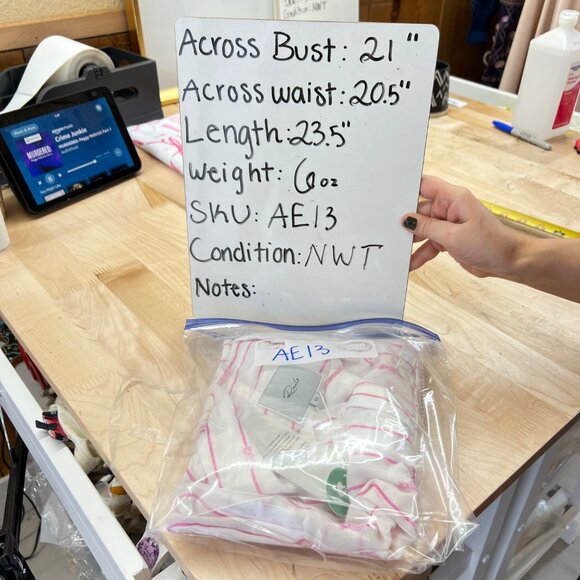 Condition: NWT
Across Bust: 21"
Across waist: 20.5"
Length: 23.5"
Weight: 6oz
SKU: AE13
Condition: NWT
Notes:
Crime Junkie
MURDERED:
AE13
Rails